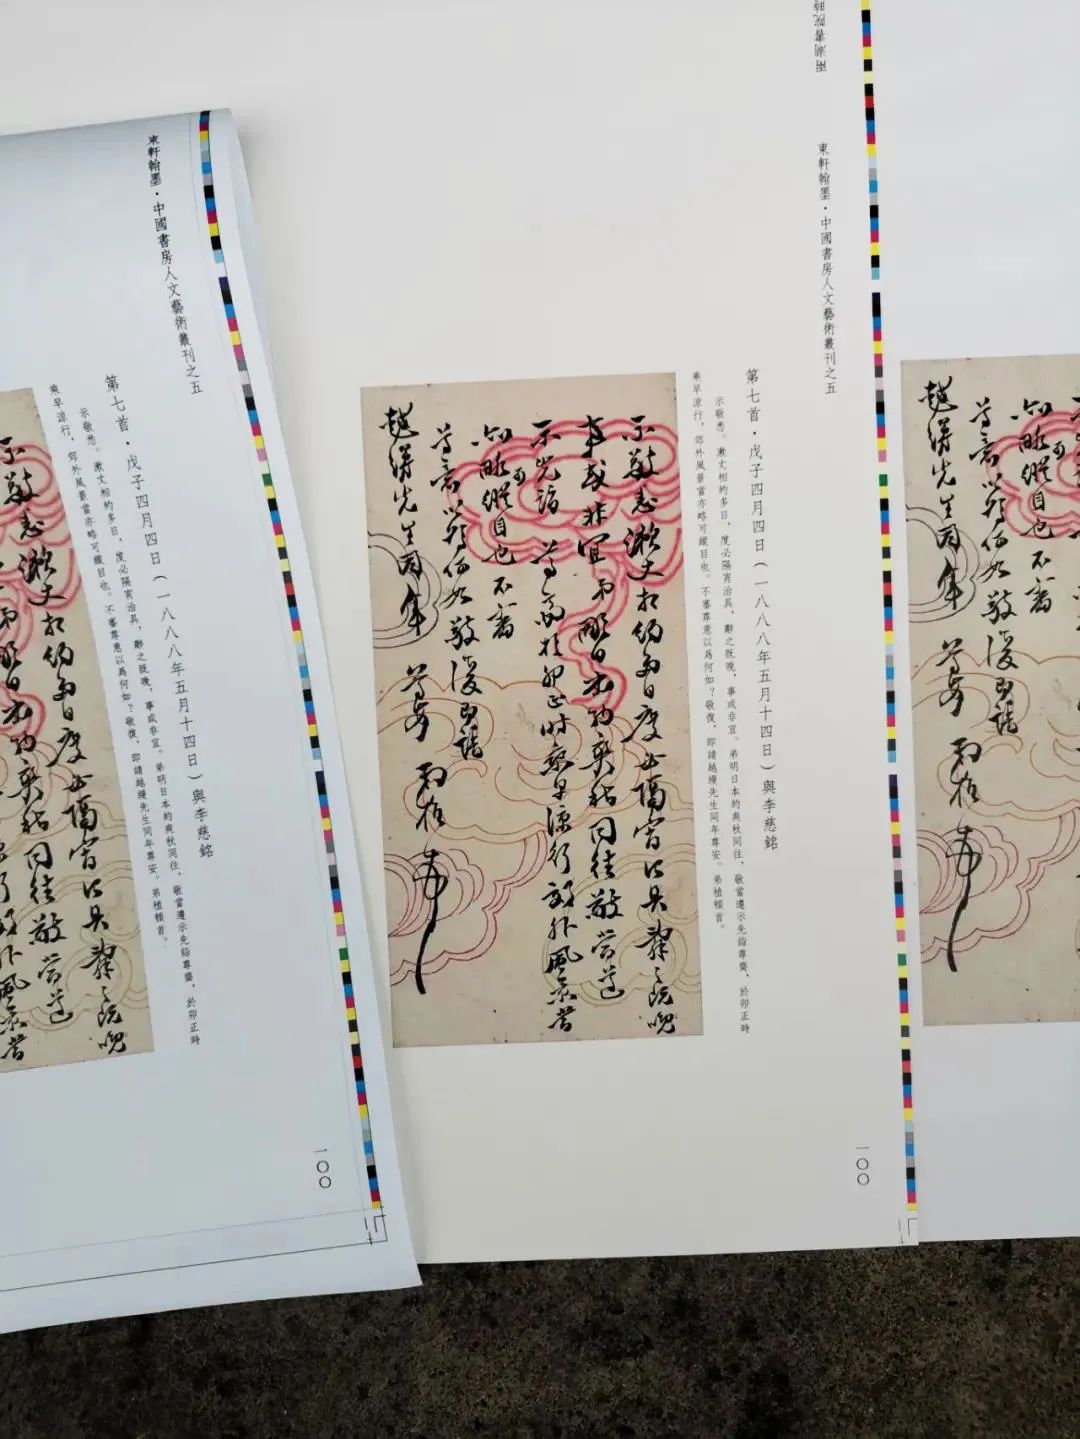 東軒翰墨·中國書房人文藝術叢刊之五
第七首·戊子四月四日(一八八八年五月十四日)與李慈銘
示敬悉。漱丈相約多日,度必隔宵治具,辭之既晚,事或非宜。弟明日本約爽秋同往,敬當遵示先詣尊齋,於卯正時
乘早涼行,郊外風景當亦略可縱目也。不審尊意以爲何如?敬復,即請越縵先生同年尊安。弟植頓首。
一〇〇
兩湖書院時
東軒翰墨·中國書房人文藝術叢刊之五
第七首·戊子四月四日(一八八八年五月十四日)與李慈銘
示敬悉。漱丈相約多日,度必隔宵治具,辭之既晚,事或非宜。弟明日本約爽秋同往,敬當遵示先詣尊齋,於卯正時
乘早涼行,郊外風景當亦略可縱目也。不審尊意以爲何如?敬復,即請越縵先生同年尊安。弟植頓首。
示敬悉漱丈相約多日度必隔宵治具辭之既晚
事或非宜弟明日本約爽秋同往敬當遵
示先詣尊齋於卯正時乘早涼行郊外風景當
亦略可縱目也不審
尊意以爲何如敬復即請
越縵先生同年尊安弟植
一〇〇